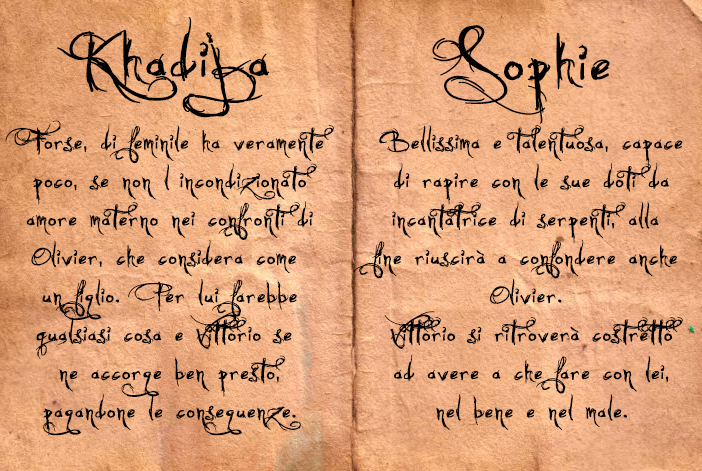 Khadija
Forse, di feminile ha veramente
poco, se non l incondizionato
amore materno nei confronti di
Olivier, che considera come
un figlio. Per lui farebbe
qualsiasi cosa e Vittorio se
ne accorge ben presto,
pagandone le conseguenze.
Sophie
Bellissima e talentuosa, capace
di rapire con le sue doti da
incantatrice di serpenti, alla
fine riuscirà a confondere anche
Olivier.
Vittorio si ritroverà costretto
ad avere a che fare con lei,
nel bene e nel male.